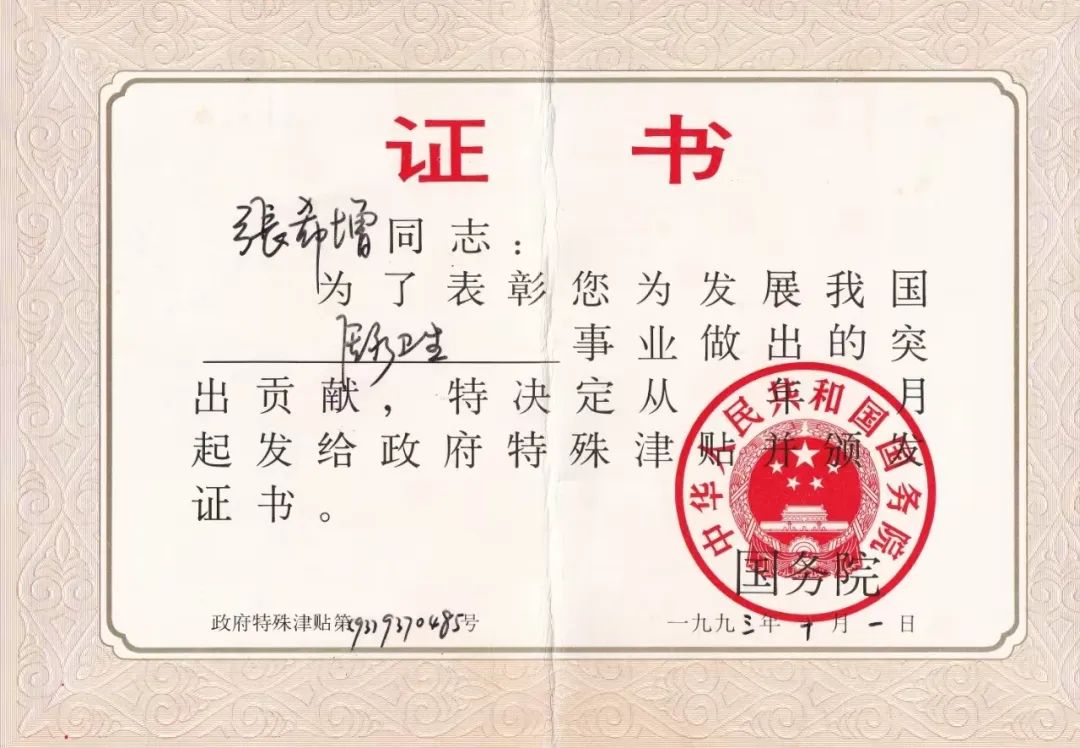 证书
張希增同志：
为了表彰您为发展我国
医疗卫生事业做出的突
出贡献，特决定从 年 月
起发给政府特殊津贴并颁发
证书。
中华人民共和国国务院
国务院
政府特殊津贴第 号
一九九三年十月一日